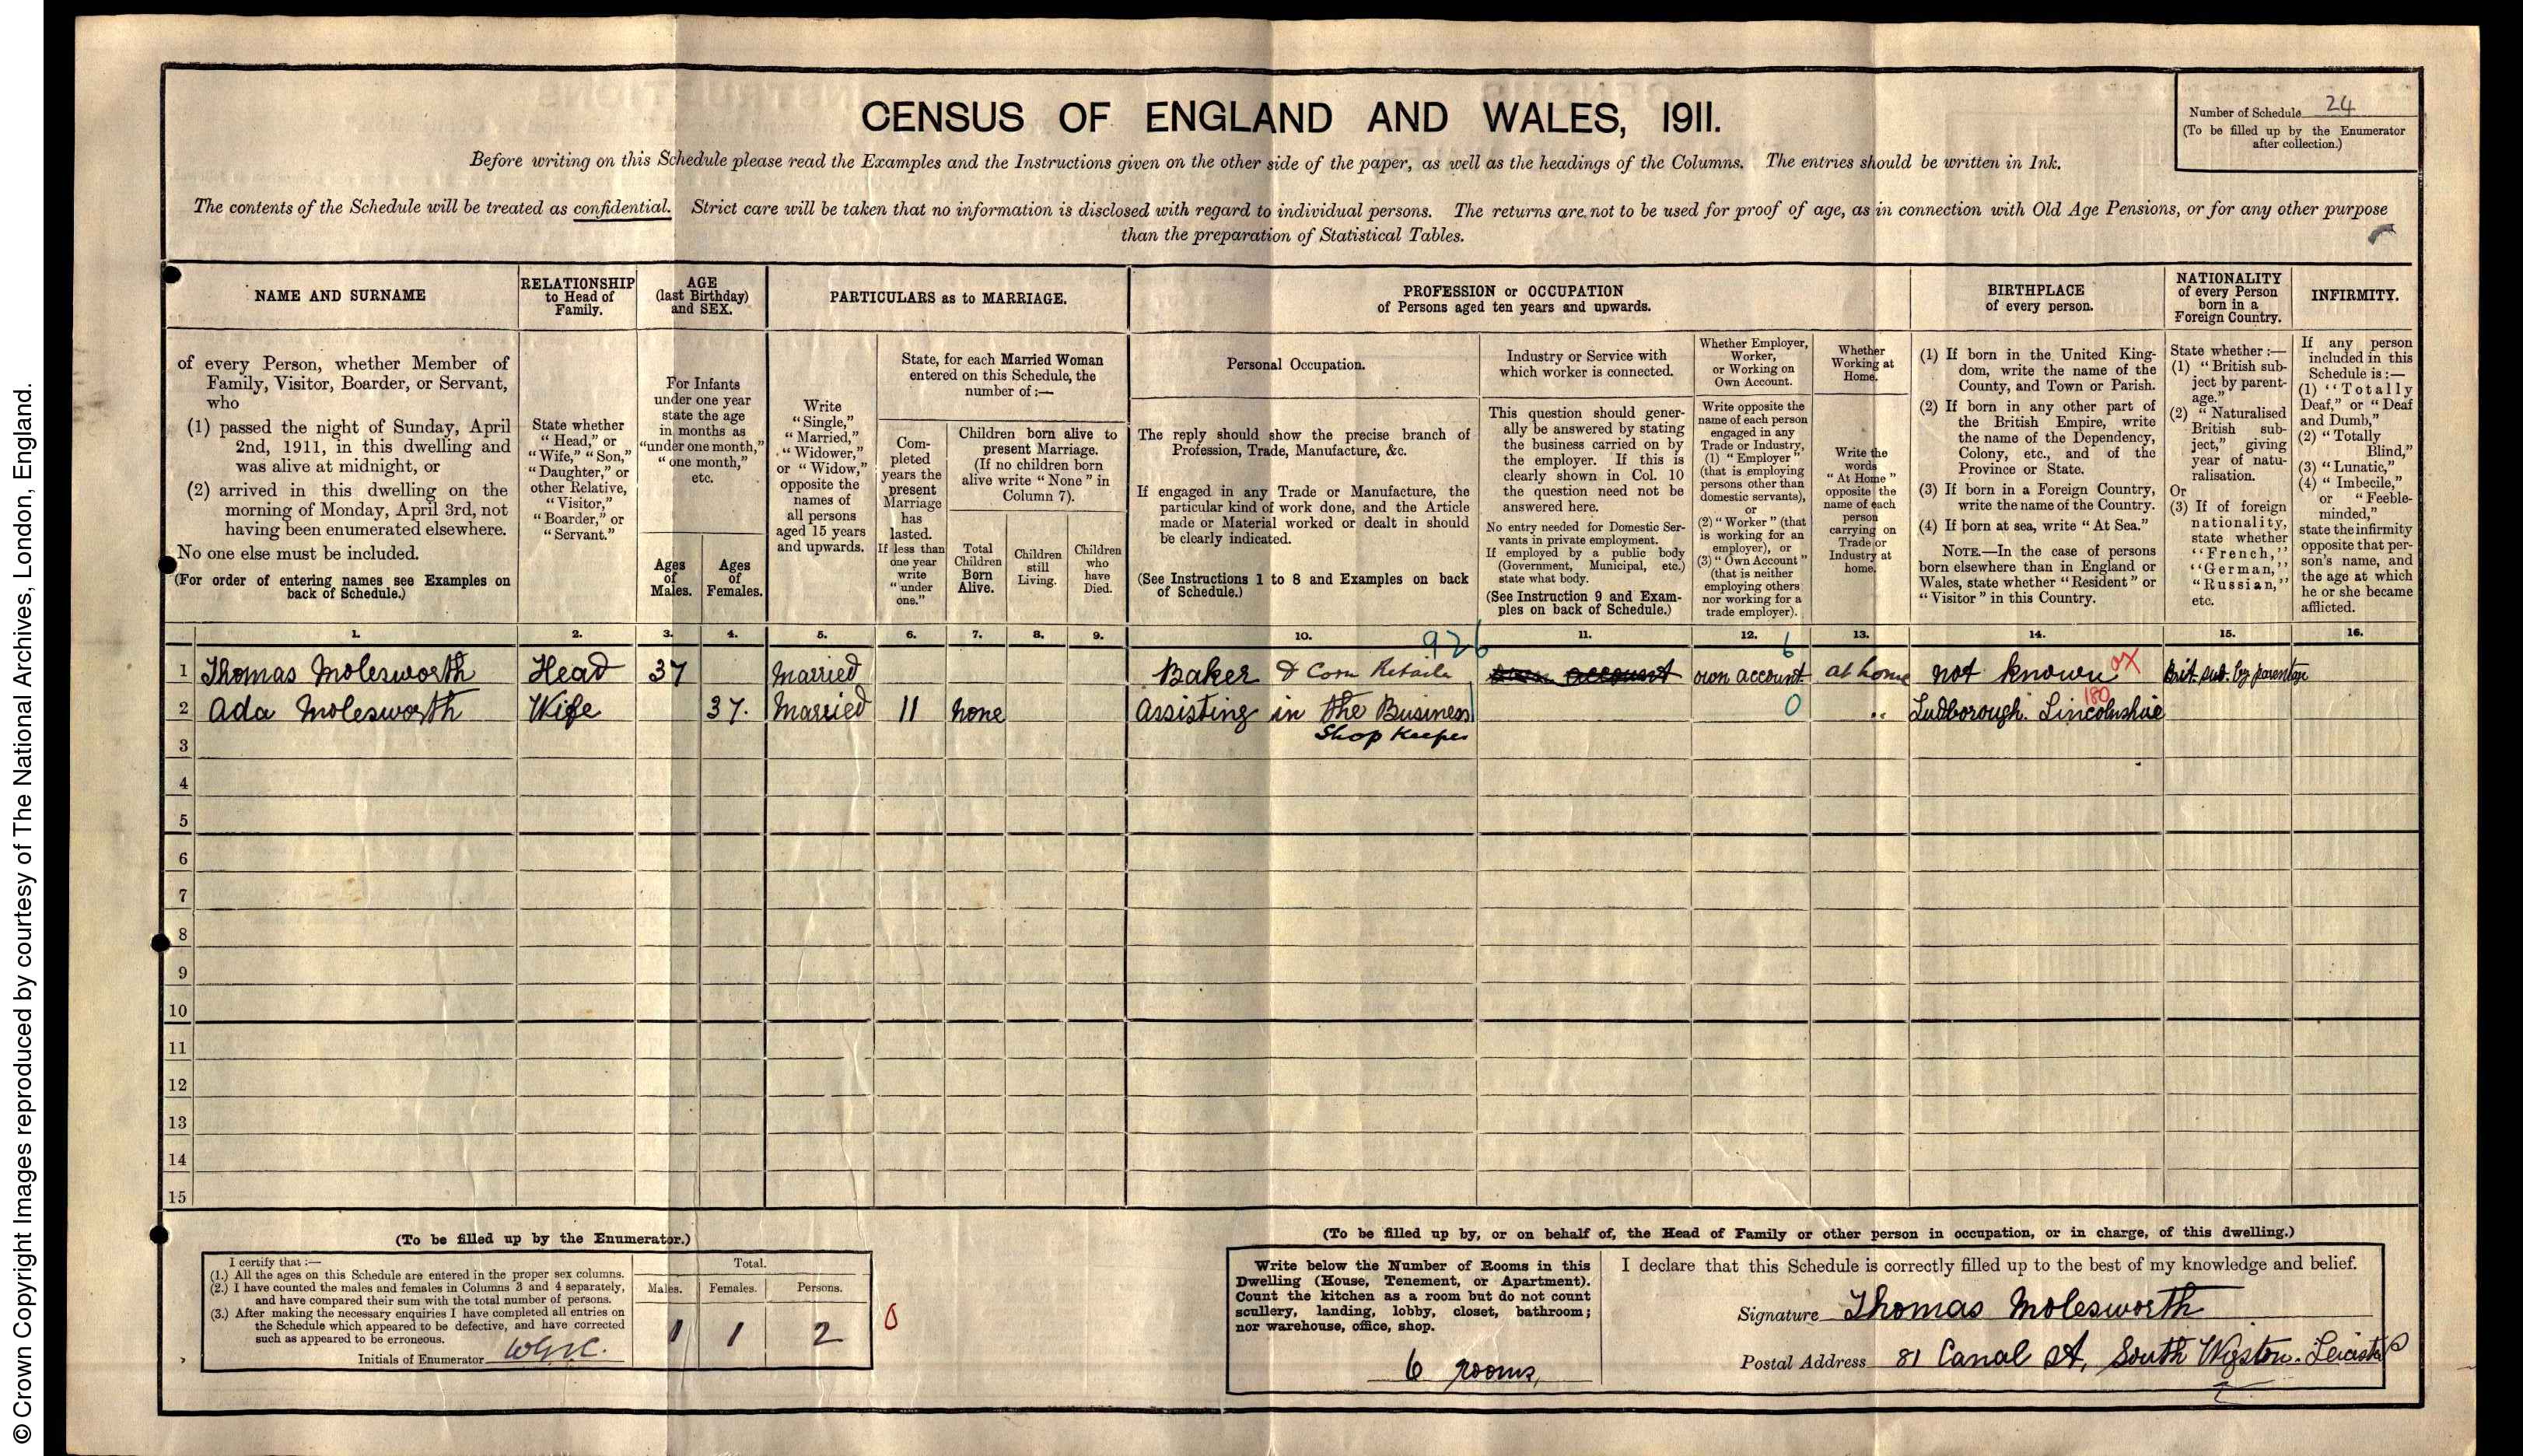 CENSUS OF ENGLAND AND WALES, 1911.
Number of Schedule 24
(To be filled up by the Enumerator
after collection.)
Before writing on this Schedule please read the Examples and the Instructions given on the other side of the paper, as well as the headings of the Columns. The entries should be written in Ink.
The contents of the Schedule will be treated as confidential. Strict care will be taken that no information is disclosed with regard to individual persons. The returns are not to be used for proof of age, as in connection with Old Age Pensions, or for any other purpose
than the preparation of Statistical Tables.
NAME AND SURNAME
of every Person, whether Member of
Family, Visitor, Boarder, or Servant,
who
(1) passed the night of Sunday, April
2nd, 1911, in this dwelling and
was alive at midnight, or
(2) arrived in this dwelling on the
morning of Monday, April 3rd, not
having been enumerated elsewhere.
No one else must be included.
(For order of entering names see Examples on
back of Schedule.)
RELATIONSHIP
to Head of
Family.
State whether
"Head," or
"Wife," "Son,"
"Daughter," or
other Relative,
"Visitor,"
"Boarder," or
"Servant."
AGE
(last Birthday)
and SEX.
For Infants
under one year
state the age
in months as
"under one month,"
"one month,"
etc.
Ages
of
Males.
Ages
of
Females.
PARTICULARS as to MARRIAGE.
Write
"Single,"
"Married,"
"Widower,"
or "Widow,"
opposite the
names of
all persons
aged 15 years
and upwards.
State, for each Married Woman
entered on this Schedule, the
number of :—
Com-
pleted
years the
present
Marriage
has
lasted.
If less than
one year
write
"under
one."
Children born alive to
present Marriage.
(If no children born
alive write "None" in
Column 7).
Total
Children
Born
Alive.
Children
still
Living.
Children
who
have
Died.
PROFESSION or OCCUPATION
of Persons aged ten years and upwards.
Personal Occupation.
The reply should show the precise branch of
Profession, Trade, Manufacture, &c.
If engaged in any Trade or Manufacture, the
particular kind of work done, and the Article
made or Material worked or dealt in should
be clearly indicated.
(See Instructions 1 to 8 and Examples on back
of Schedule.)
Industry or Service with
which worker is connected.
This question should gener-
ally be answered by stating
the business carried on by
the employer. If this is
clearly shown in Col. 10
the question need not be
answered here.
No entry needed for Domestic Ser-
vants in private employment.
If employed by a public body
(Government, Municipal, etc.)
state what body.
(See Instruction 9 and Exam-
ples on back of Schedule.)
Whether Employer,
Worker,
or Working on
Own Account.
Write opposite the
name of each person
engaged in any
Trade or Industry,
(1) "Employer"
(that is employing
persons other than
domestic servants),
or
(2) "Worker" (that
is working for an
employer), or
(3) "Own Account"
(that is neither
employing others
nor working for a
trade employer).
Whether
Working at
Home.
Write the
words
"At Home"
opposite the
name of each
person
carrying on
Trade or
Industry at
home.
BIRTHPLACE
of every person.
(1) If born in the United King-
dom, write the name of the
County, and Town or Parish.
(2) If born in any other part of
the British Empire, write
the name of the Dependency,
Colony, etc., and of the
Province or State.
(3) If born in a Foreign Country,
write the name of the Country.
(4) If born at sea, write "At Sea."
NOTE.—In the case of persons
born elsewhere than in England or
Wales, state whether "Resident" or
"Visitor" in this Country.
NATIONALITY
of every Person
born in a
Foreign Country.
State whether :—
(1) "British sub-
ject by parent-
age."
(2) "Naturalised
British sub-
ject," giving
year of natu-
ralisation.
Or
(3) If of foreign
nationality,
state whether
"French,"
"German,"
"Russian,"
etc.
INFIRMITY.
If any person
included in this
Schedule is :—
(1) "Totally
Deaf," or "Deaf
and Dumb,"
(2) "Totally
Blind,"
(3) "Lunatic,"
(4) "Imbecile,"
or "Feeble-
minded,"
state the infirmity
opposite that per-
son's name, and
the age at which
he or she became
afflicted.
1. 2. 3. 4. 5. 6. 7. 8. 9. 10. 11. 12. 13. 14. 15. 16.
926 6
1 Thomas Molesworth Head 37 Married Baker & Corn Retailer own account own account at home not known OX Brit. sub. by parentage
180
2 Ada Molesworth Wife 37. Married 11 none Assisting in the Business 0 " Ludborough. Lincolnshire
3 Shop Keeper
4
5
6
7
8
9
10
11
12
13
14
15
(To be filled up by the Enumerator.)
I certify that :—
(1.) All the ages on this Schedule are entered in the proper sex columns.
(2.) I have counted the males and females in Columns 3 and 4 separately,
and have compared their sum with the total number of persons.
(3.) After making the necessary enquiries I have completed all entries on
the Schedule which appeared to be defective, and have corrected
such as appeared to be erroneous.
Initials of Enumerator
Total.
Males. Females. Persons.
1 1 2
0
(To be filled up by, or on behalf of, the Head of Family or other person in occupation, or in charge, of this dwelling.)
Write below the Number of Rooms in this
Dwelling (House, Tenement, or Apartment).
Count the kitchen as a room but do not count
scullery, landing, lobby, closet, bathroom;
nor warehouse, office, shop.
6 rooms,
I declare that this Schedule is correctly filled up to the best of my knowledge and belief.
Signature Thomas Molesworth
Postal Address 81 Canal St, South Wigston. Leicester
© Crown Copyright Images reproduced by courtesy of The National Archives, London, England.